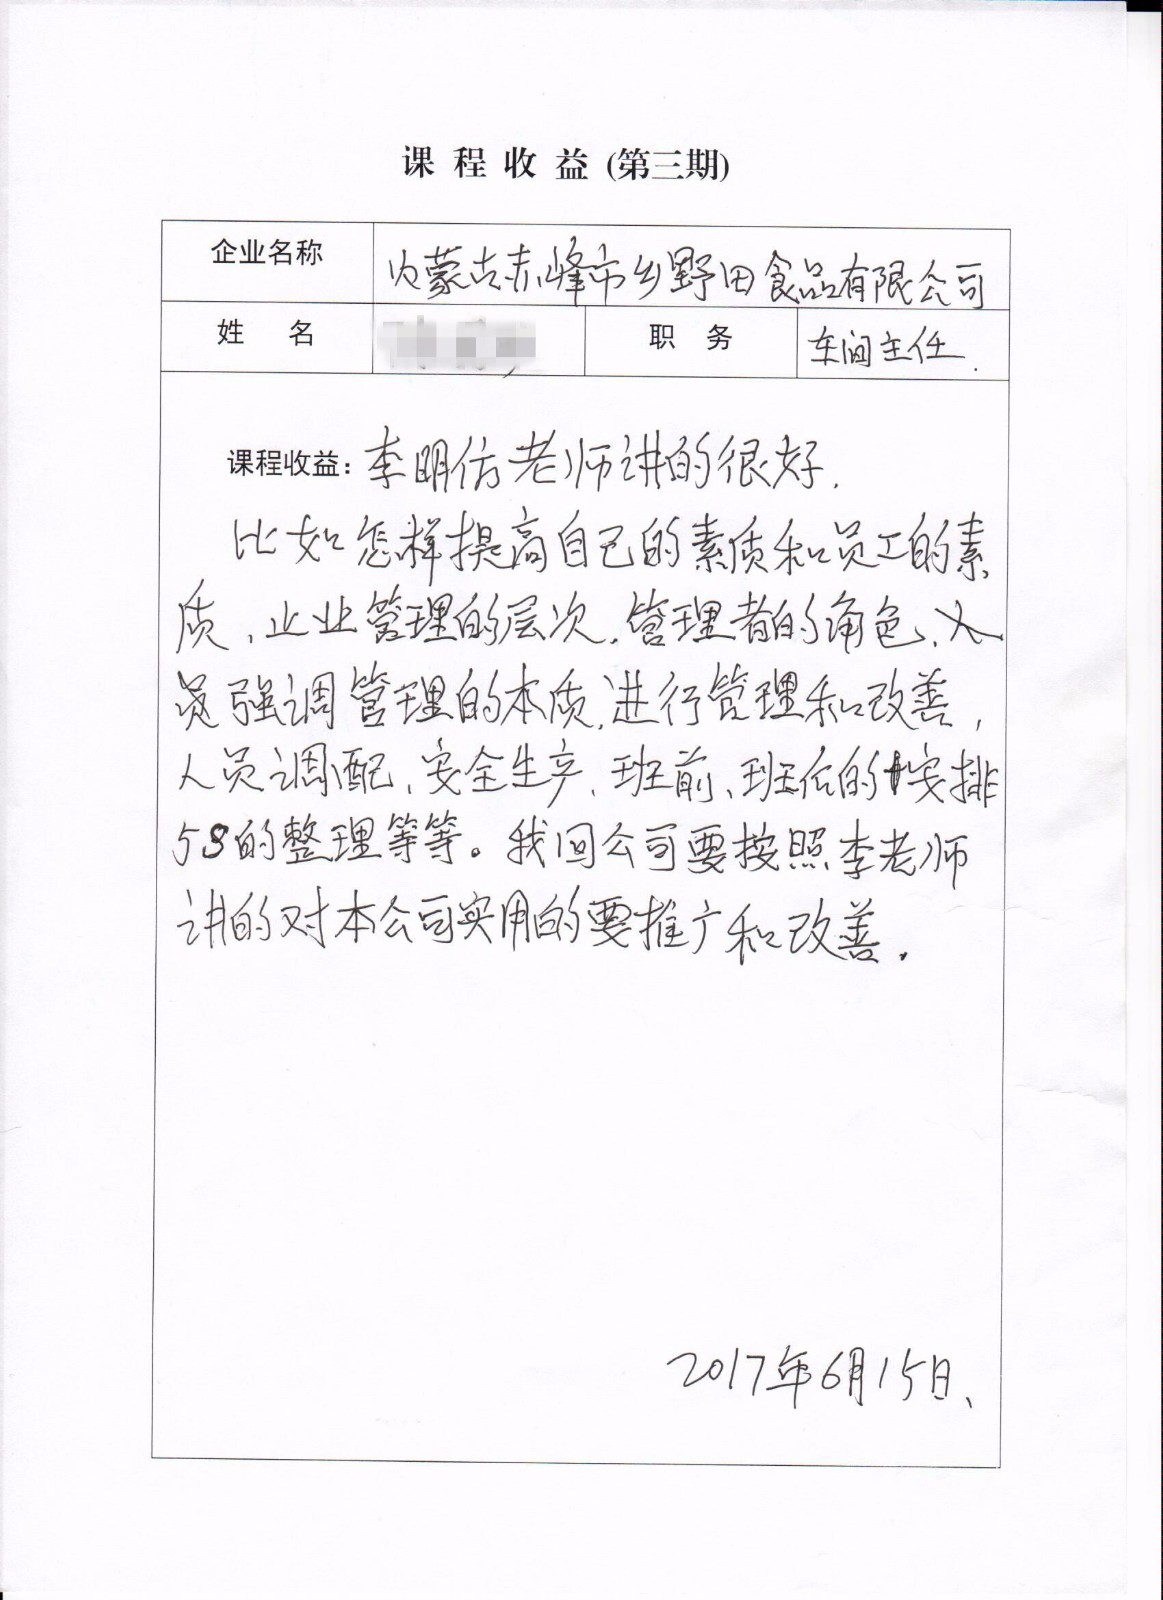 课程收益(第三期)
企业名称 内蒙古赤峰市乡野田食品有限公司
姓 名 职 务 车间主任.
课程收益:李明仿老师讲的很好.
比如怎样提高自己的素质和员工的素
质、止业管理的层次.管理者的角色、人
员强调管理的本质,进行管理和改善,
人员调配、安全生产、班前、班后的安排
5S的整理等等。我回公司要按照李老师
讲的对本公司实用的要推广和改善.
2017年6月15日、